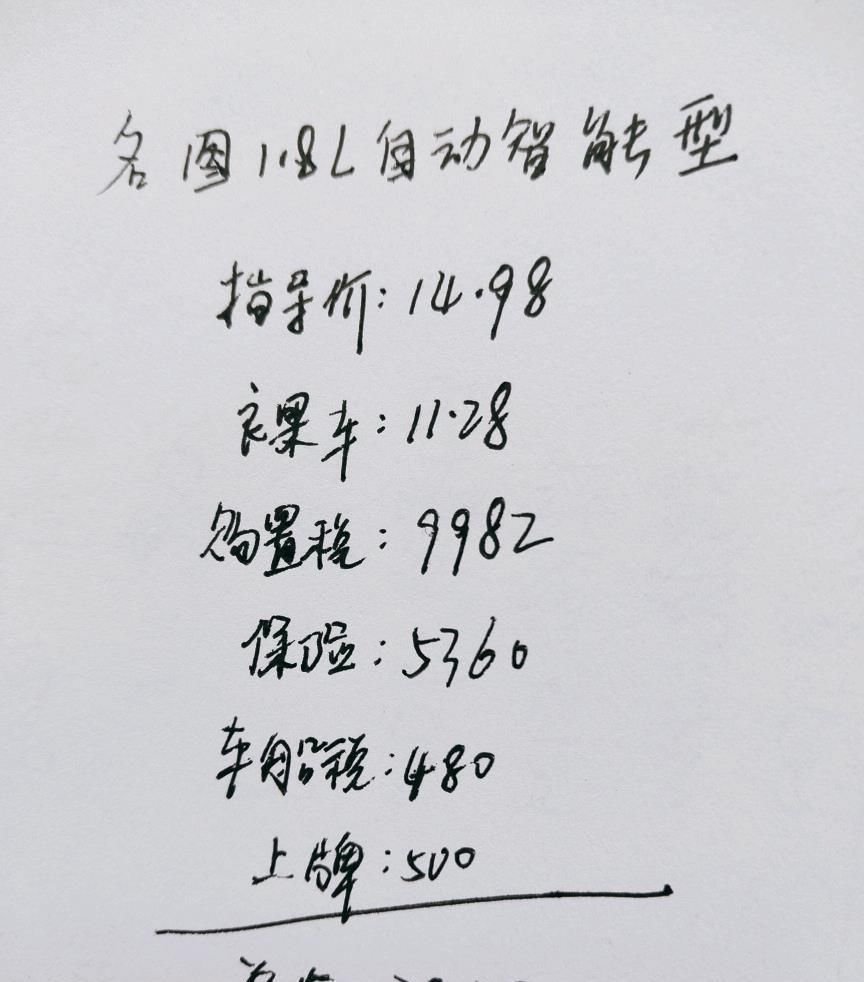 名图1.8L自动智能型
指导价:14.98
裸车:11.28
购置税:9982
保险:5360
车船税:480
上牌:500